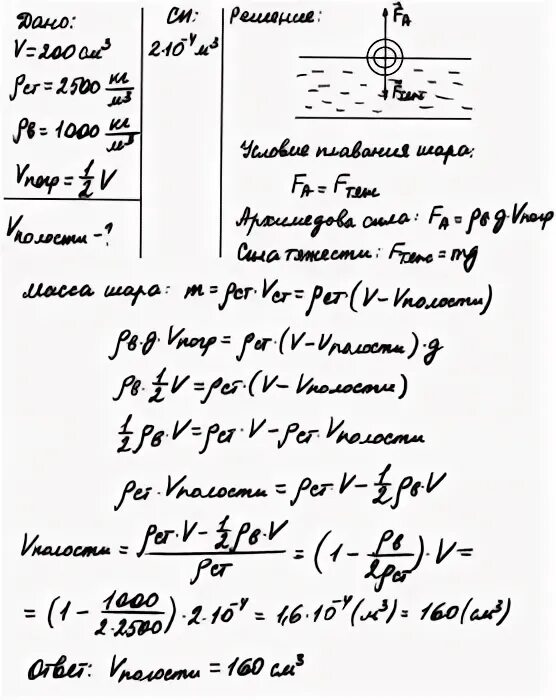 Дано:
V = 200 см³
ρст = 2500 кг/м³
ρв = 1000 кг/м³
Vпогр = 1/2 V
Vполости - ?
СИ:
2·10⁻⁴ м³
Решение:
F⃗A
F⃗тяж
Условие плавания шара:
FA = Fтяж
Архимедова сила: FA = ρв g·Vпогр
Сила тяжести: Fтяж = mg
Масса шара: m = ρст·Vст = ρст·(V – Vполости)
ρв·g·Vпогр = ρст·(V – Vполости)·g
ρв·1/2 V = ρст·(V – Vполости)
1/2 ρв·V = ρст·V – ρст·Vполости
ρст·Vполости = ρст·V – 1/2 ρв·V
Vполости = (ρст·V – 1/2 ρв·V)/ρст = (1 – ρв/2ρст)·V =
= (1 – 1000/2·2500)·2·10⁻⁴ = 1,6·10⁻⁴ (м³) = 160 (см³)
Ответ: Vполости = 160 см³